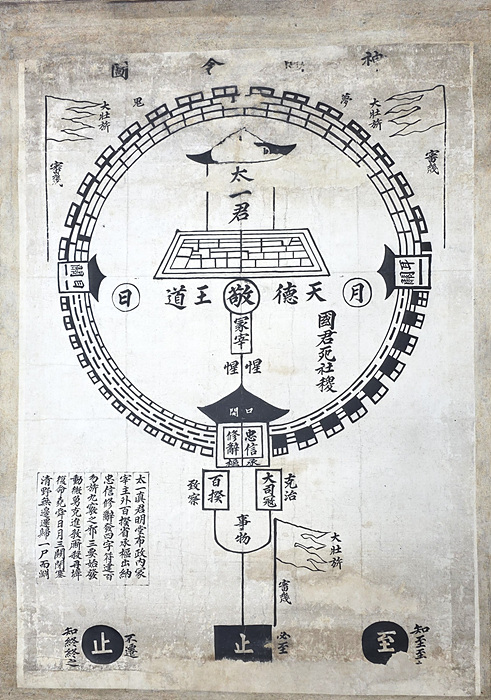 神明舍圖
夢
鬼
大壯旂
審幾
大壯旂
審幾
太一君
耳關
目關
月
天德
敬
王道
日
國君死社稷
冢宰
惺惺
口關
忠信
修辭
承樞
大司寇
克治
百揆
致察
事物
大壯旂
審幾
太一真君明堂布政內冢
宰主外百揆省承樞出納
忠信修辭發四字符建百
勿旂九竅之邪三要始發
動微勇克進教廝殺丹墀
復命堯舜日月三關閉塞
清野無邊還歸一尸而淵
知至至之
至
必至
止
不遷
止
知終終之